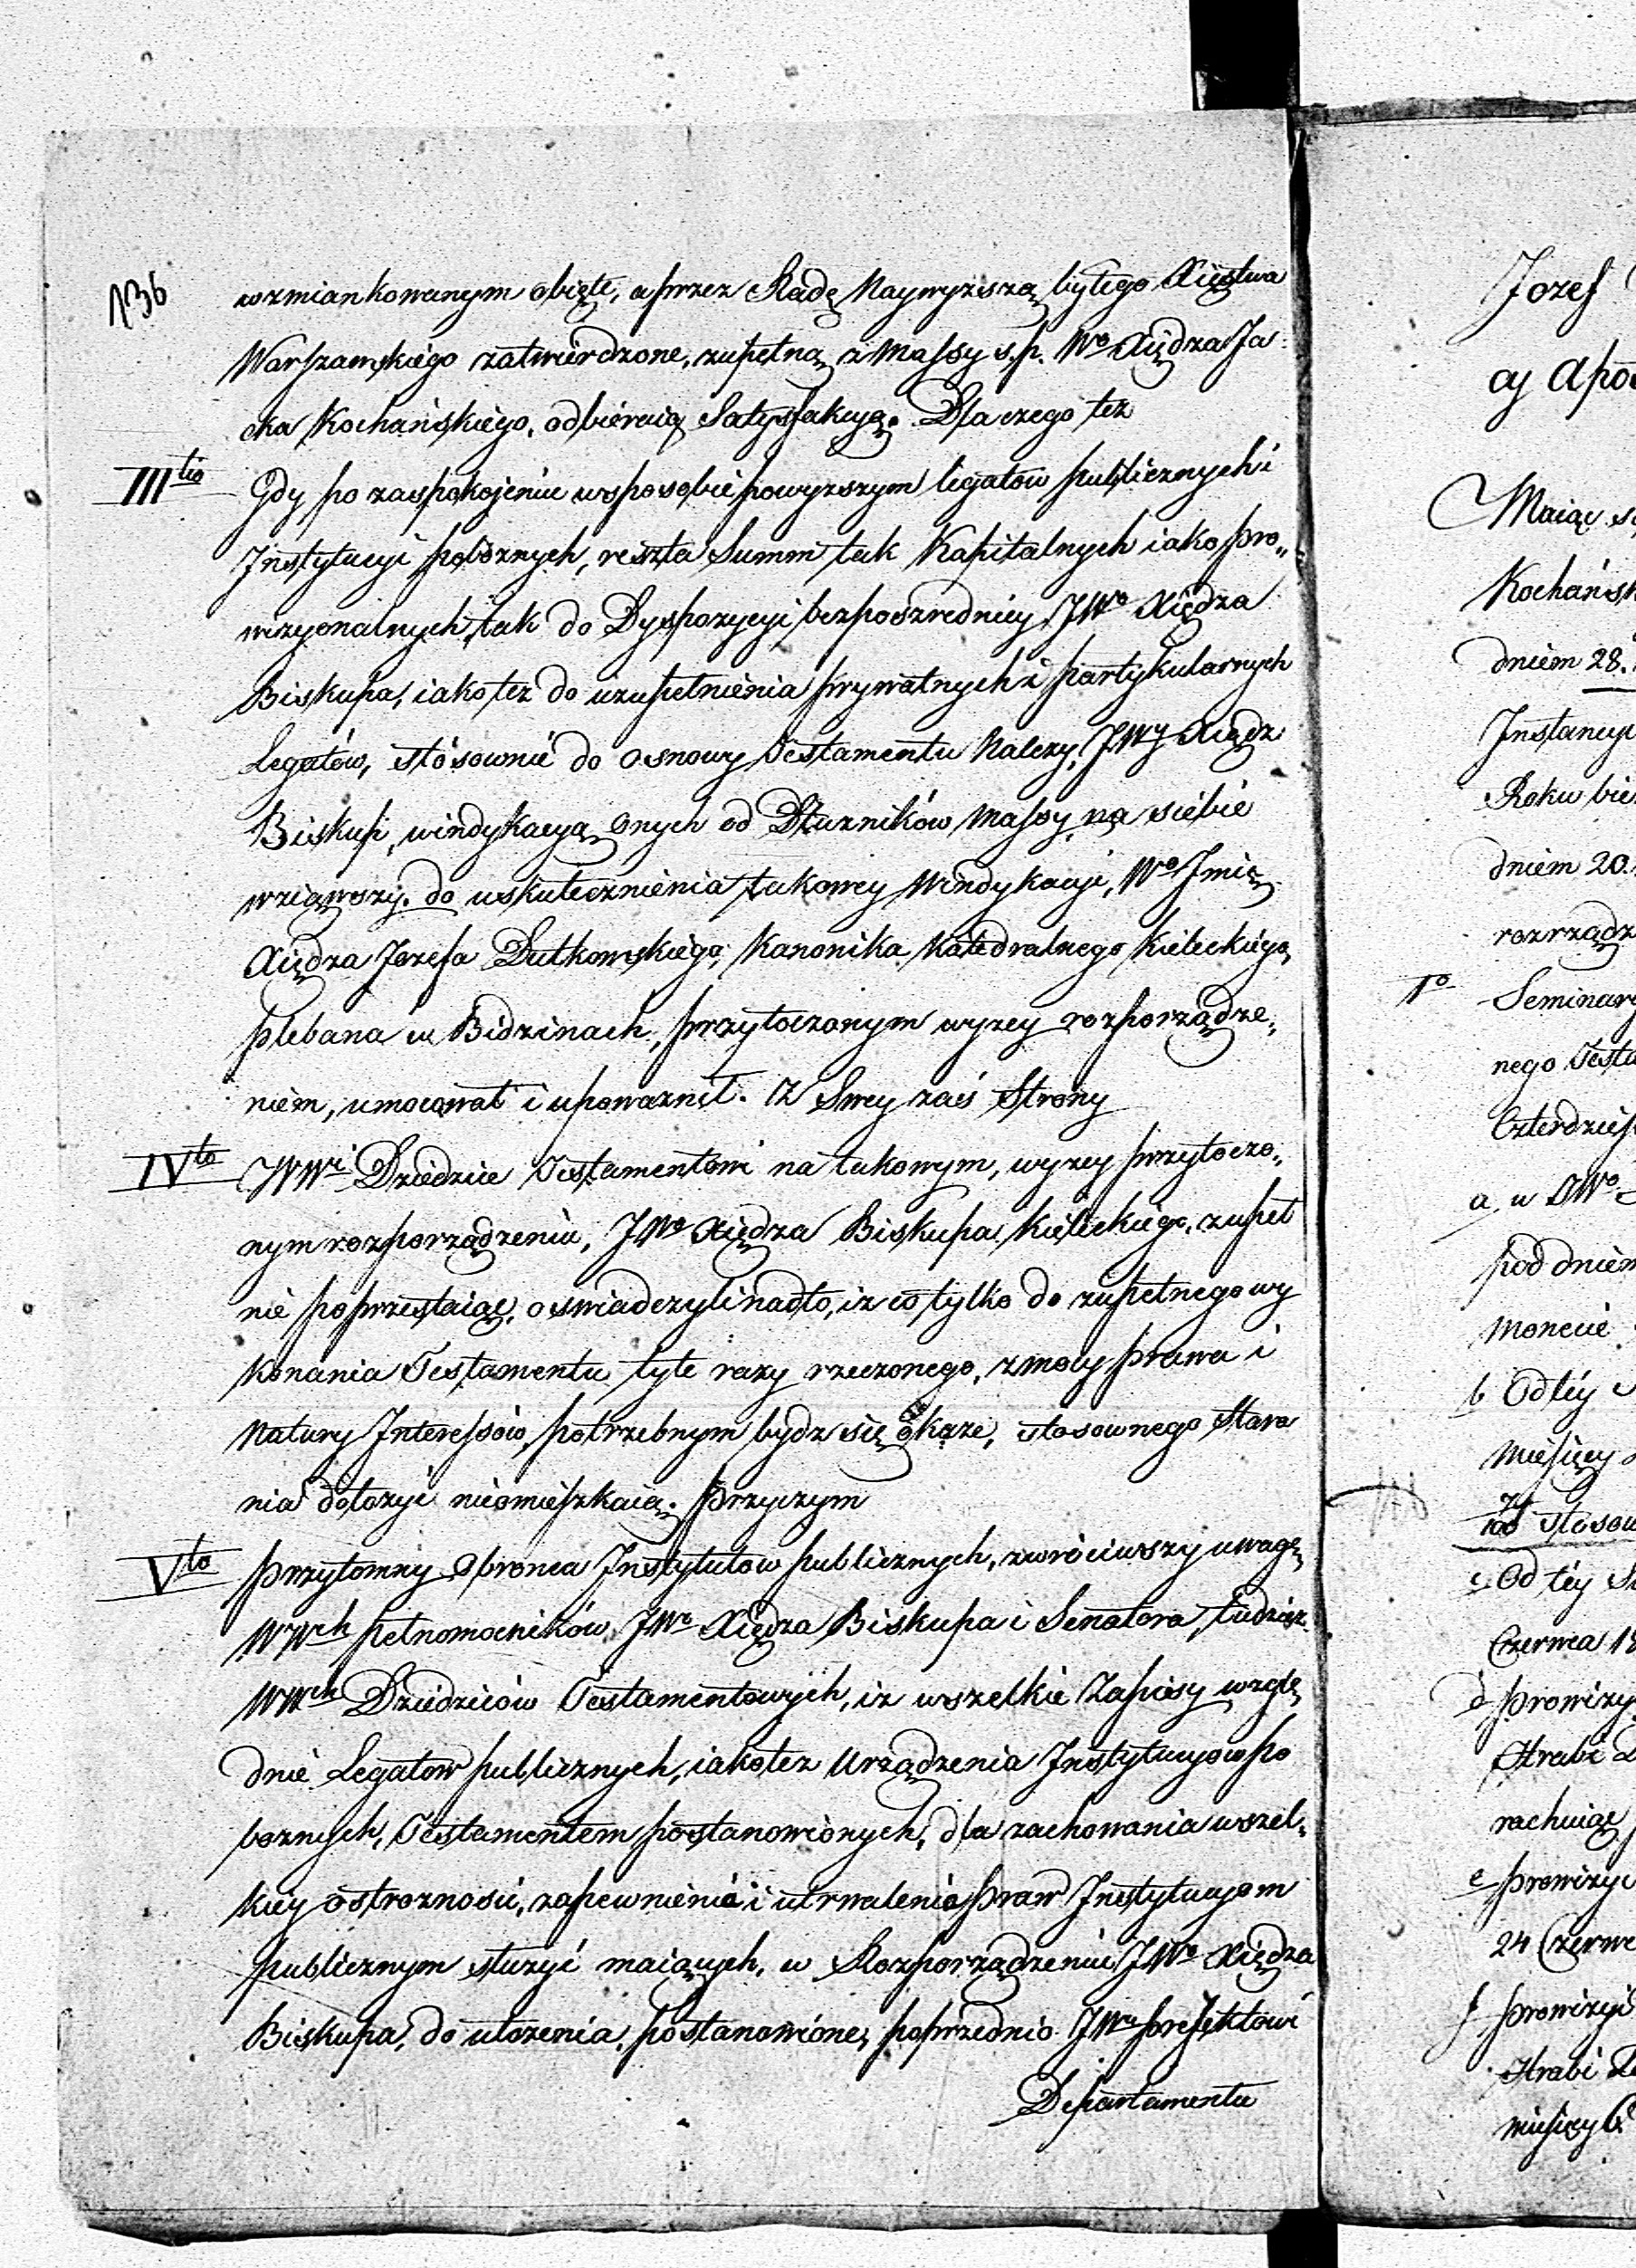 136
wzmiankowanym obięte, a przez Radę Naywyższą byłego Xięstwa
Warszawskiego zatwierdzone, zupełną z Massy ś.p. Wo Xiędza Ja
cka Kochańskiego, odbieraią Satysfakcyą. Dla czego też
IIItio Gdy po zaspokojeniu w sposobie powyższym legatów publicznych i
Instytucyi pobożnych, reszta Summ tak Kapitalnych iako pro„
wizyonalnych, tak do Dyspozycyi bezpośredniey JWo Xiędza
Biskupa, iako też do uzupełnienia prywatnych i partykularnych
Legatów, stósownie do osnowy Testamentu Należy, JWy Xiądz
Biskup, windykacyą onych od Dłużników Massy na siebie
wziąwszy, do uskutecznienia takowey Windykacyi, Wo Jmię
Xiędza Jozefa Dutkowskiego, Kanonika Katedralnego Kieleckiego,
plebana w Bidzinach, przytoczonym wyżey rozporządze„
niem, umocował i upoważnił. Z Swey zaś Strony
IVto WWi Dziedzice Testamentowi na takowym, wyżey przytoczo„
nym rozporządzeniu, JWo Xiędza Biskupa Kieleckiego, zupeł
nie poprzestaiąc, oswiadczyli nadto, iż co tylko do zupełnego wy
konania Testamentu tyle razy rzeczonego, z mocy prawa i
Natury Interessów, potrzebnym bydź się okaże, stosownego Stara
nia dołożyć nieomieszkaią. Przyczym
Vto Przytomny Obronca Instytutow publicznych, zwróciwszy uwagę
WWch pełnomocników JWo Xiędza Biskupa i Senatora, tudzież
WWch Dziedziców Testamentowych, iż wszelkie Zapisy wzglę
dnie Legatow publicznych, iako też Urządzenia Instytucyow po
bożnych, Testamentem postanowionych, dla zachowania wszel„
kiey ostrożności, zapewnienia i utrwalenia praw Instytucyom
publicznym służyć maiących, w Rozporządzeniu JWo Xiędza
Biskupa, do ułożenia postanowione, poprzednio JWu prefektowi
Departamentu
Jozef
a) Apo
Maiąc
Kochańsk
dniem 28.
Instancyi
Roku bie
dniem 20.
rozrządz
1o Seminary
nego Testa
Czterdzieś
a, u JWo
pod dniem
Monecie
b Od téy
Miesięcy
stosow
c Od téy
Czerwca 18
d prowizy
Hrabi
rachuiąc
e prowizyi
24 Czerwc
f prowizyi
Hrabi
miesięcy